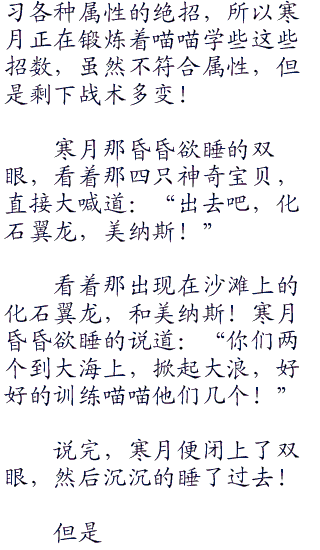 习各种属性的绝招，所以寒
月正在锻炼着喵喵学些这些
招数，虽然不符合属性，但
是剩下战术多变！
寒月那昏昏欲睡的双
眼，看着那四只神奇宝贝，
直接大喊道：“出去吧，化
石翼龙，美纳斯！”
看着那出现在沙滩上的
化石翼龙，和美纳斯！寒月
昏昏欲睡的说道：“你们两
个到大海上，掀起大浪，好
好的训练喵喵他们几个！”
说完，寒月便闭上了双
眼，然后沉沉的睡了过去！
但是